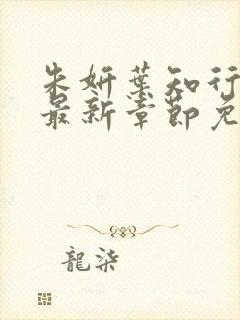 朱妍葉知行
最新章節免
龍柒